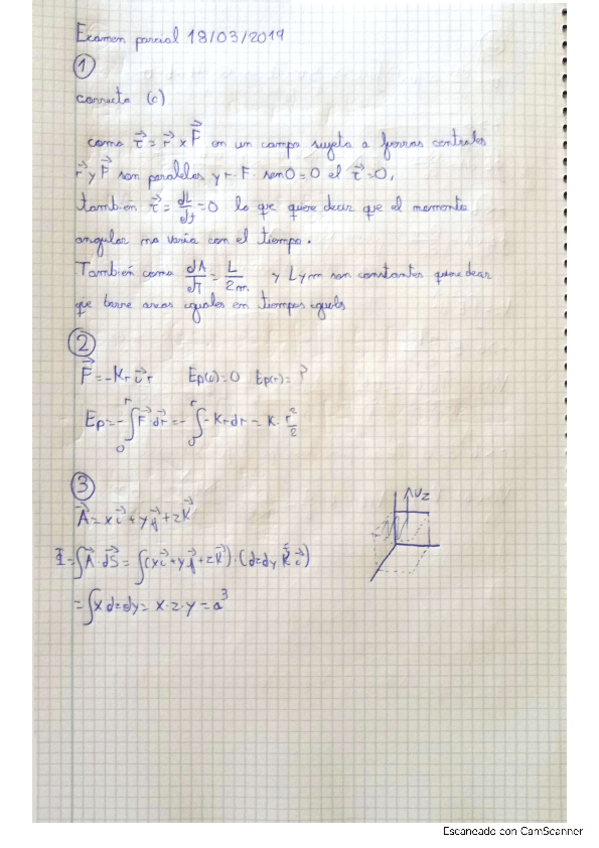 Examen parcial 18/03/2019
①
correcta (c)
como τ⃗ = r⃗ x F⃗ en un campo sujeto a fuerzas centrales
r⃗ y F⃗ son paralelos y r · F · sen0 = 0 el τ⃗ = 0,
también τ⃗ = dL/dt = 0 lo que quiere decir que el momento
angular no varia con el tiempo.
También como dA/dT = L/2m y L y m son constantes quiere decir
que barre areas iguales en tiempos iguales
②
F⃗ = -Kr i⃗r Ep(0) = 0 Ep(r) = ?
Ep = -∫₀ʳ F⃗ dr⃗ = -∫₀ʳ -Krdr = K · r²/2
③
A⃗ = xi⃗ + yj⃗ + zK⃗
Uz
Φ = ∫A⃗ · dS⃗ = ∫(xi⃗ + yj⃗ + zK⃗) · (dzdy i⃗)
= ∫xdzdy = x · z · y = a³
Escaneado con CamScanner